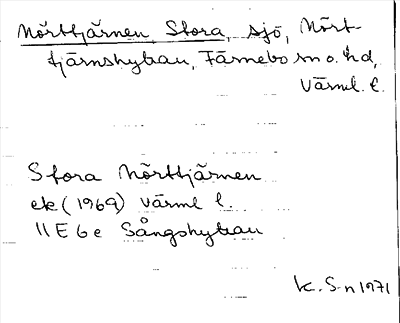 Mörttjärnen, Stora, sjö, Mört-
tjärnshyttan, Färnebo sn o. hd,
Värml. l.
Stora Mörttjärnen
ek (1969) Värml l.
11 E 6 e Sångshyttan
k. S-n 1971